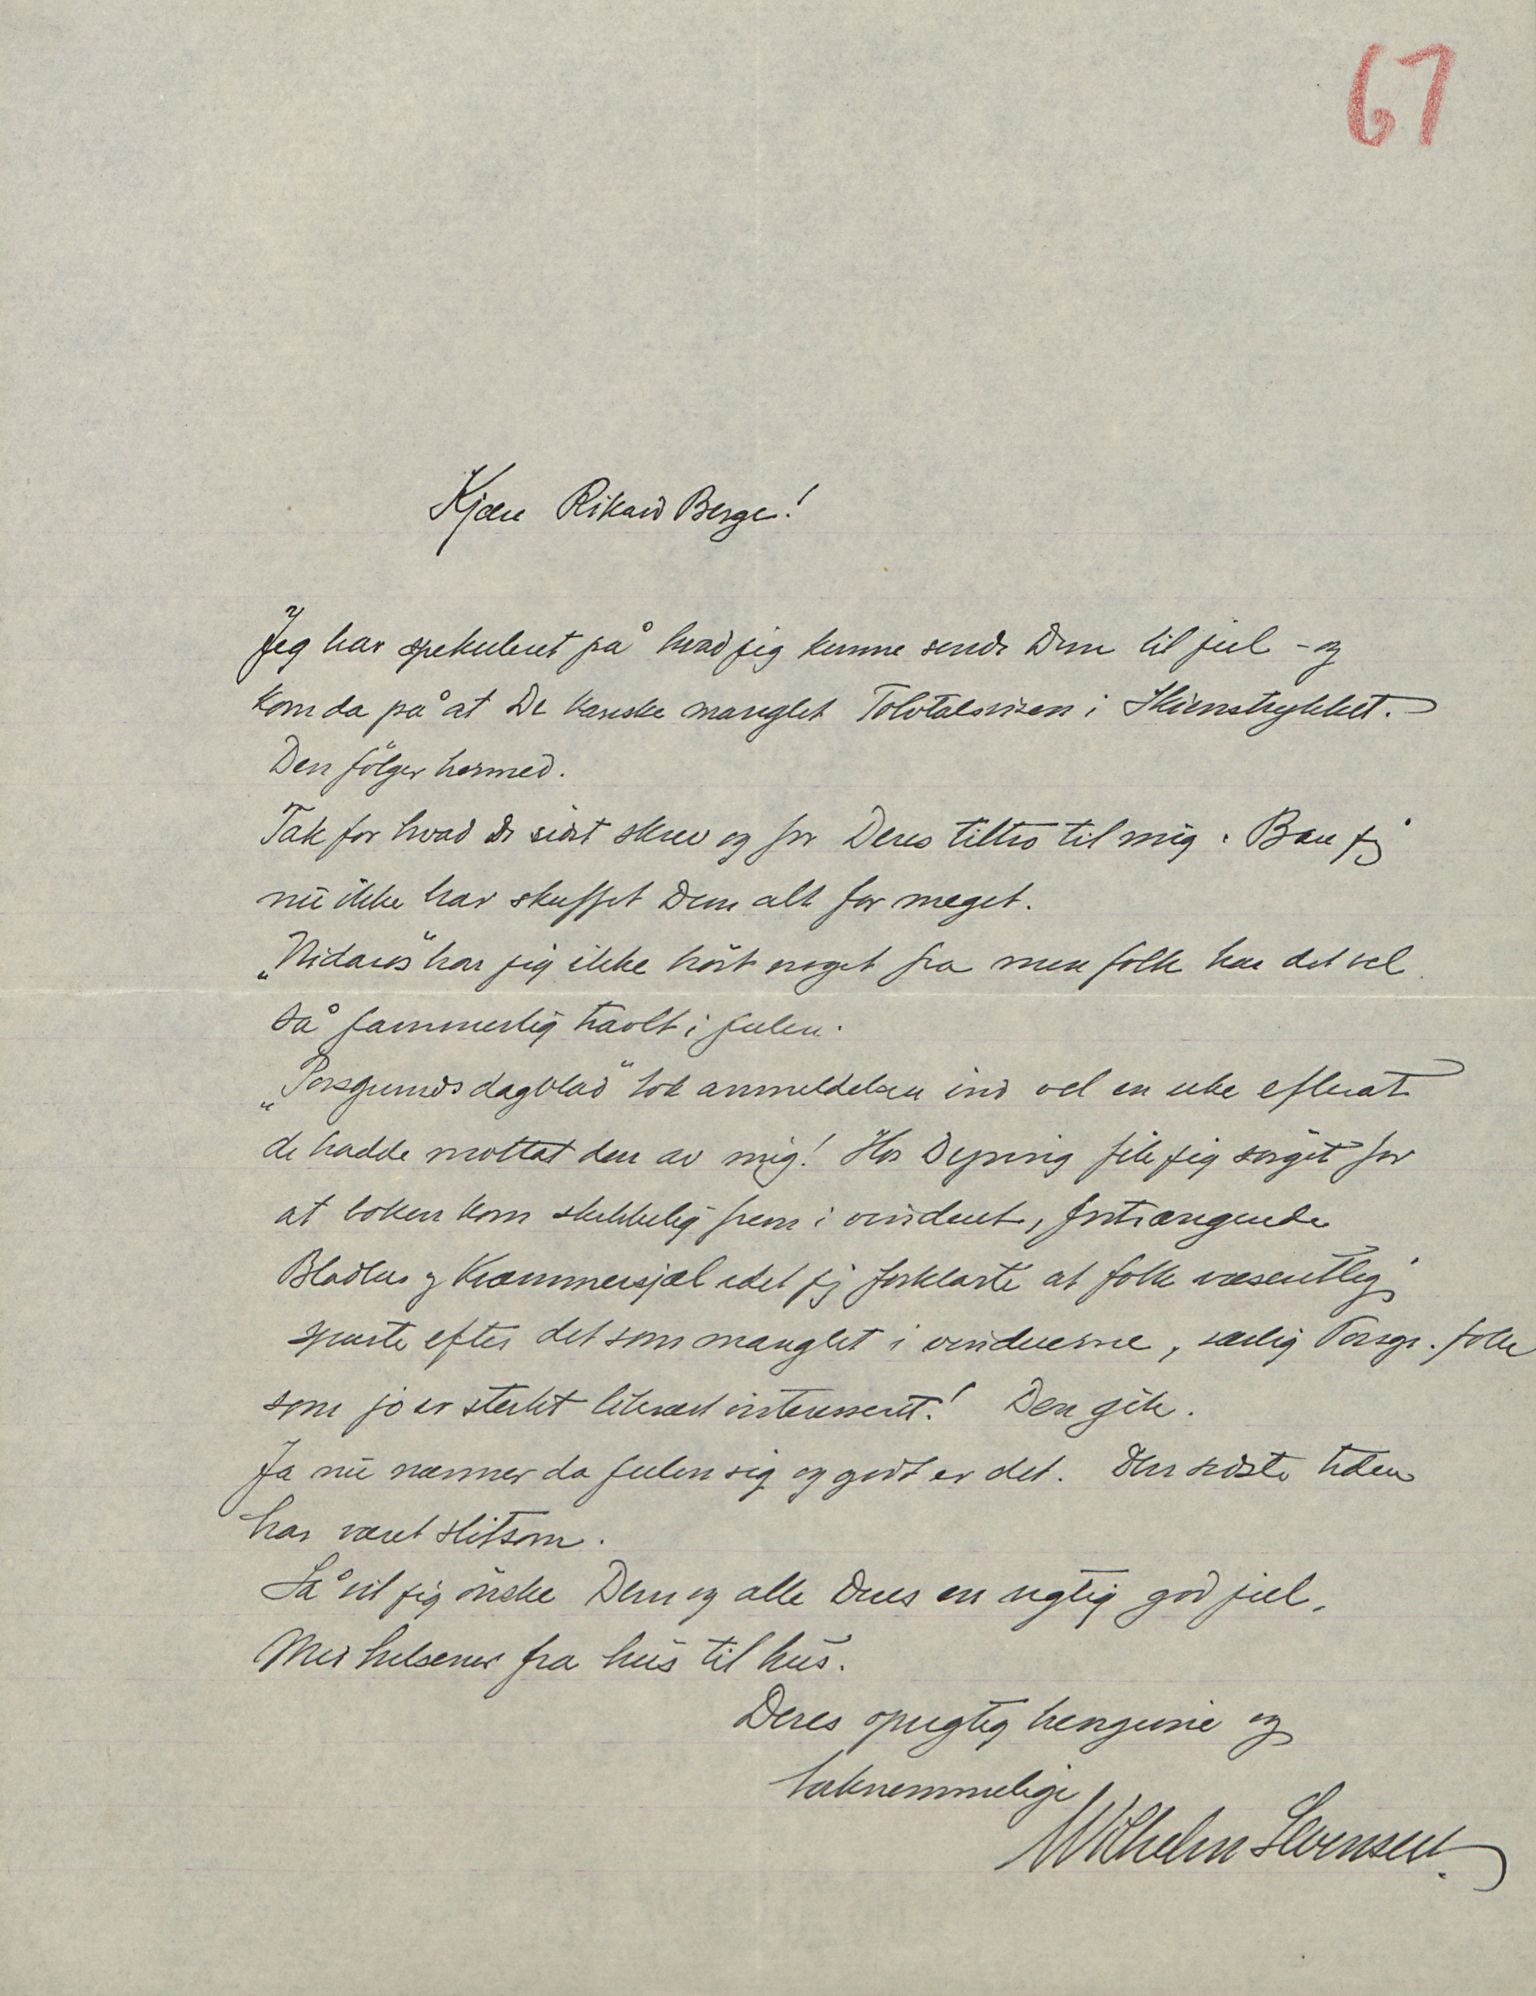 67
Kjære Rikard Berge!
Jeg har spekuleret på hvad jeg kunne sende Dem til jul – og
kom da på at De kanske manglet Tolvtalsvisen i Skienstrykket.
Den følger hermed.
Tak for hvad De sidst skrev og for Deres tiltro til mig. Bare jeg
nu ikke har skuffet Dem alt for meget.
„Nidaros" har jeg ikke hört noget fra men folk har det vel
så jammerlig travlt i julen.
„Porsgrunds dagblad" tok anmeldelsen ind vel en uke efterat
de hadde mottat den av mig! Hos Dyring fik jeg sörget for
at boken kom skikkelig frem i vinduet, fortrængende
Bladlus og Kræmmersjæl idet jeg forklarte at folk væsentlig
spurte efter det som manglet i vinduerne, særlig Porsgr. folk
som jo er sterkt literært interesseret! Den gik.
Ja nu nærmer da julen sig og godt er det. Den sidste tiden
har været slitsom.
Så vil jeg önske Dem og alle Deres en rigtig god jul.
Med hilsener fra hus til hus.
Deres oprigtig hengivne og
taknemmelige
Wilhelm Svensen.